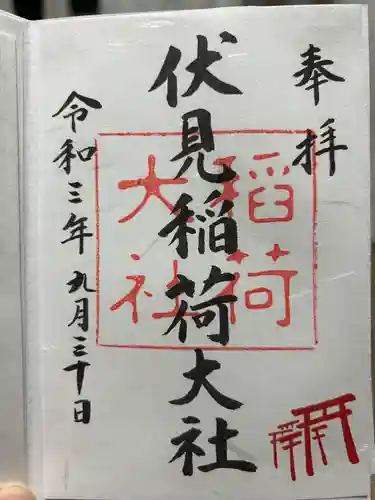 奉拝
伏見稲荷大社
稲荷
大社
令和三年九月三十日